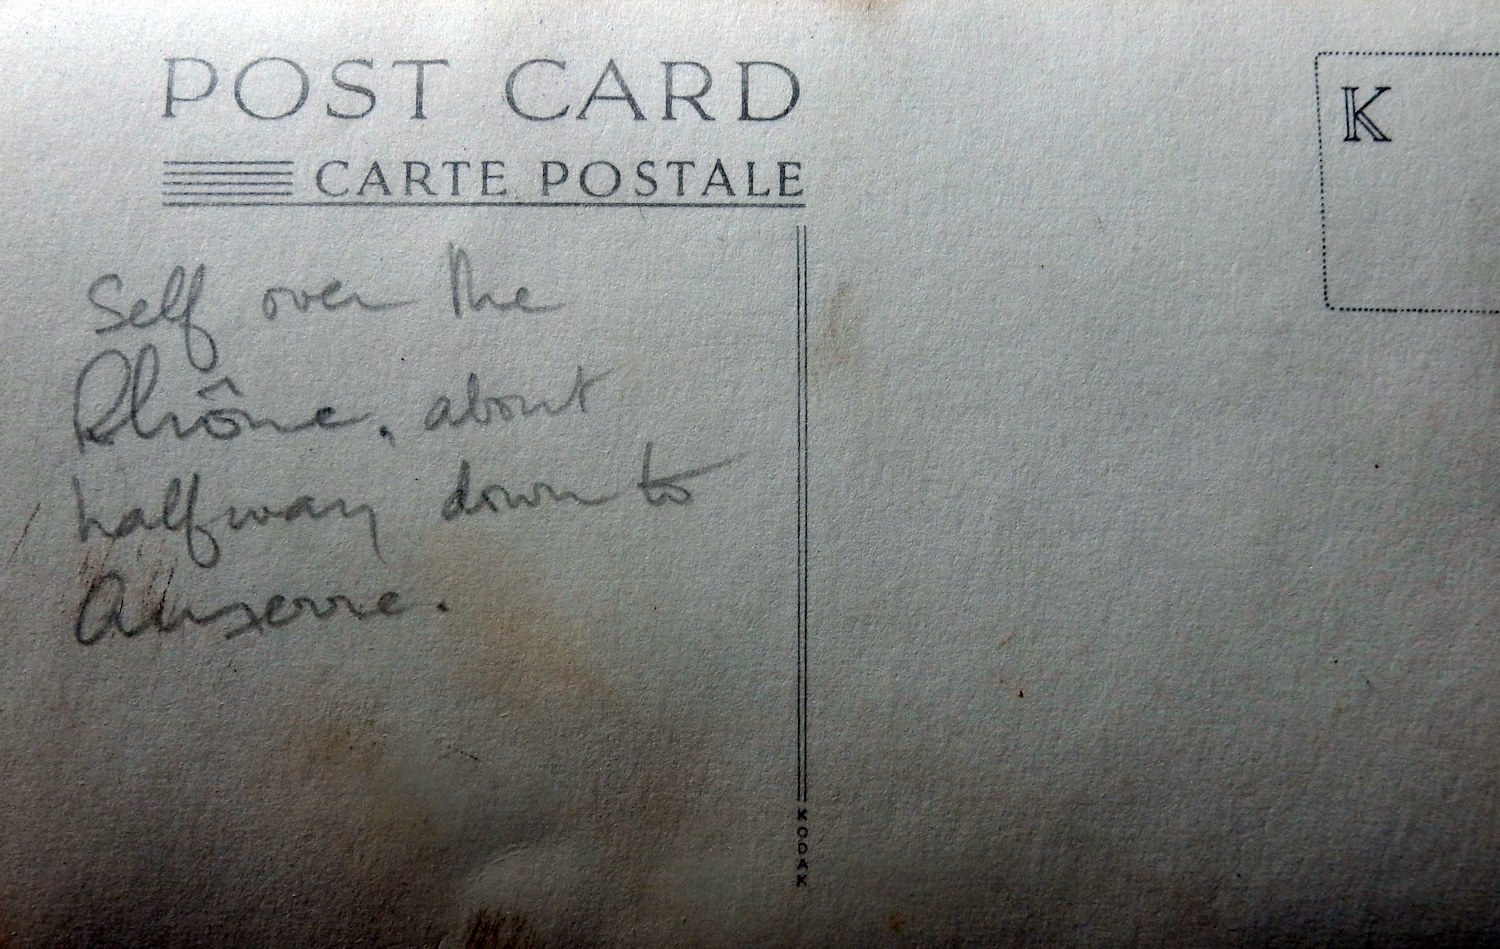 POST CARD
CARTE POSTALE
K
Self over the
Rhône, about
halfway down to
Auxerre.
KODAK